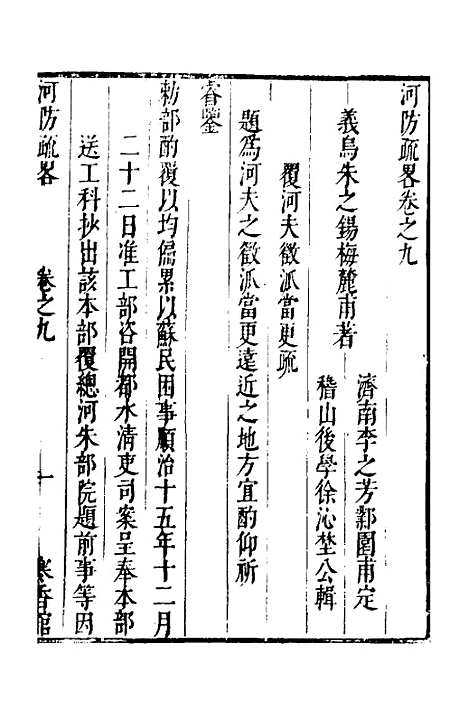 河防疏畧卷之九
濟南李之芳鄴園甫定
義烏朱之錫梅麓甫著
稽山後學徐沁埜公輯
覆河夫徵派當更疏
題為河夫之徵派當更遠近之地方宜酌仰祈
睿鑒
勅部酌覆以均偏累以蘇民困事順治十五年十二月
二十二日准工部咨開都水清吏司案呈奉本部
送工科抄出該本部覆總河朱部院題前事等因
河防疏畧
卷之九
一
寒香館